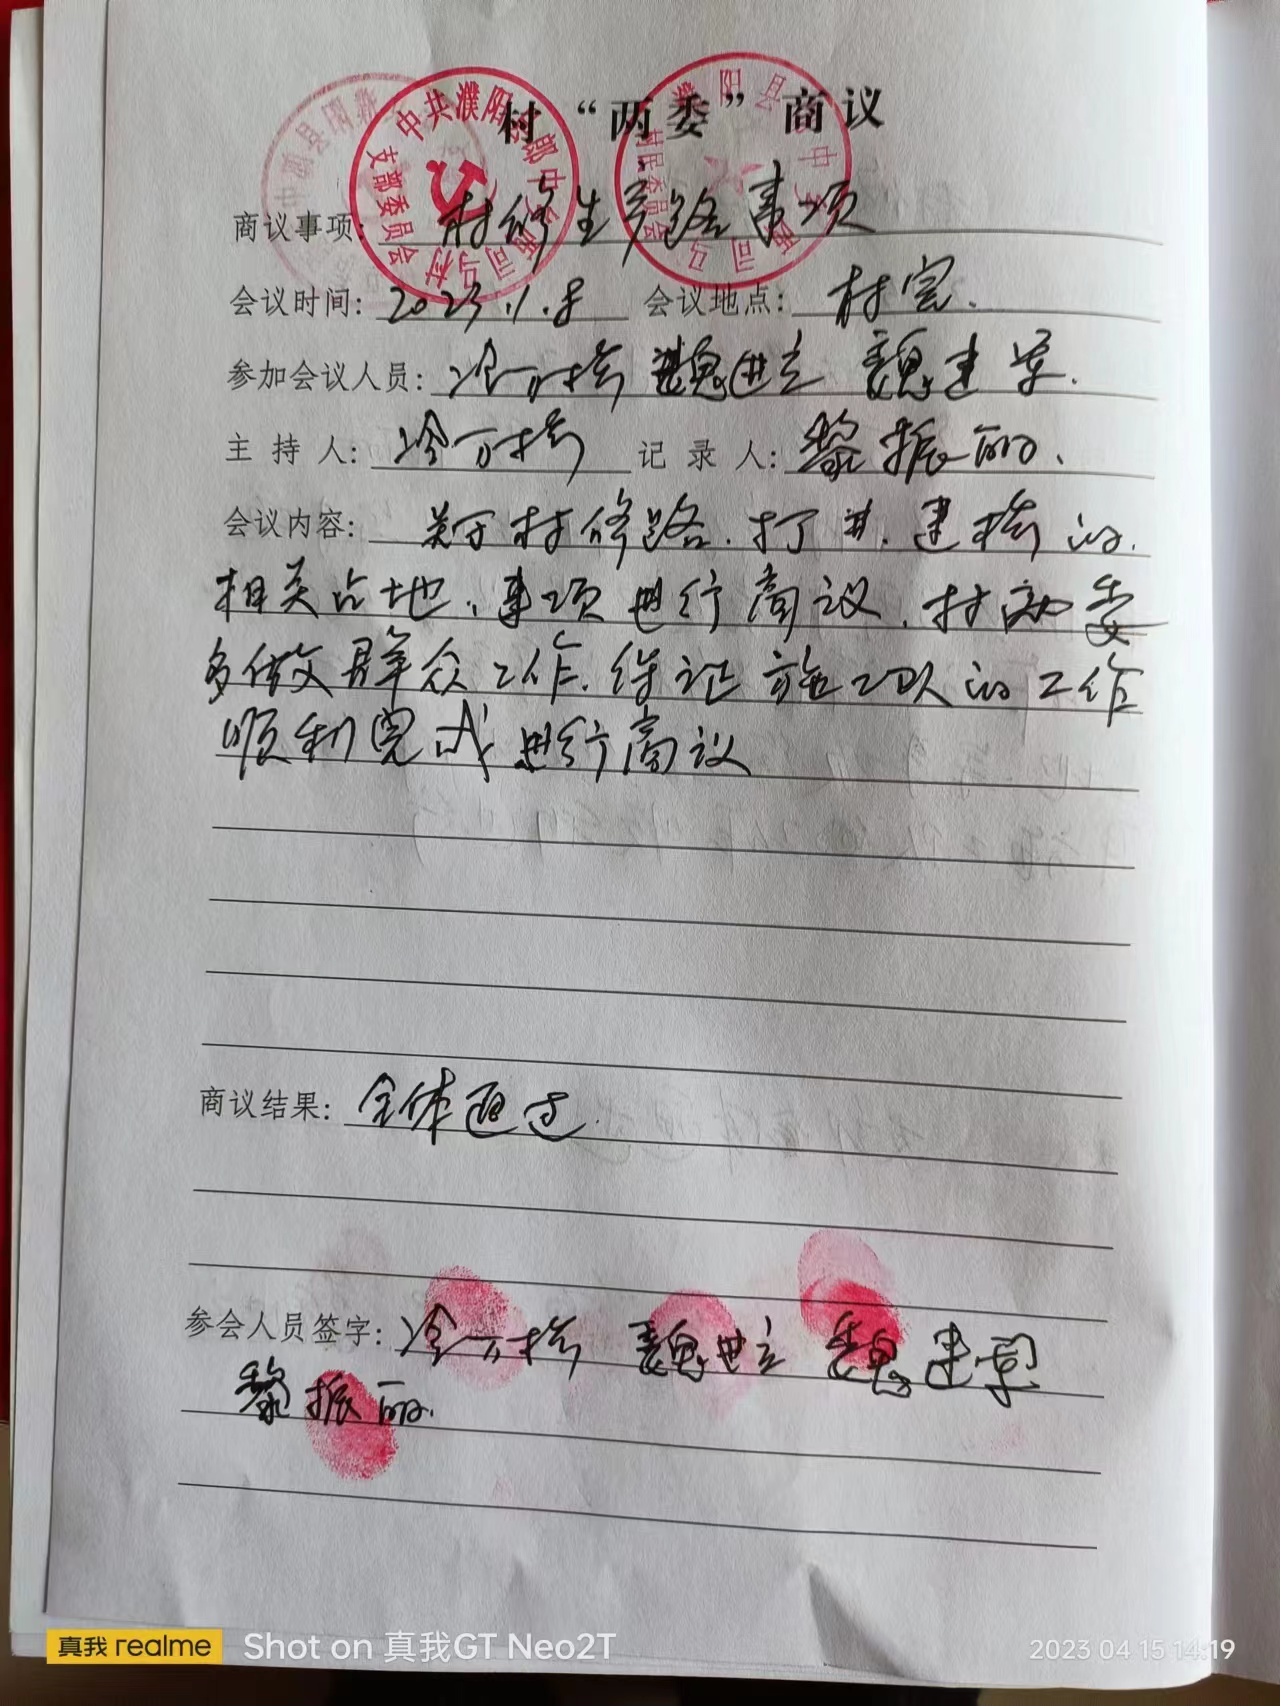 村“两委”商议
中共濮阳县郎中乡西司马村
支部委员会
濮阳县郎中乡西司马
村民委员会
商议事项: 村修生产路事项
会议时间: 2023.1.8 会议地点: 村室.
参加会议人员: 冷万桥 魏进立 魏建军.
主 持 人: 冷万桥 记 录 人: 黎振丽.
会议内容: 关于村修路.打井.建桥的.
相关占地.事项进行商议.村两委
多做群众工作.保证施工队的工作
顺利完成进行商议
商议结果: 全体通过.
参会人员签字: 冷万桥 魏进立 魏建军
黎振丽.
真我 realme Shot on 真我GT Neo2T 2023 04 15 14:19